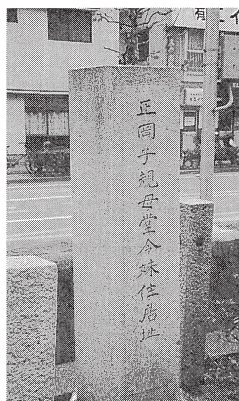 正岡子規母堂令妹住居址